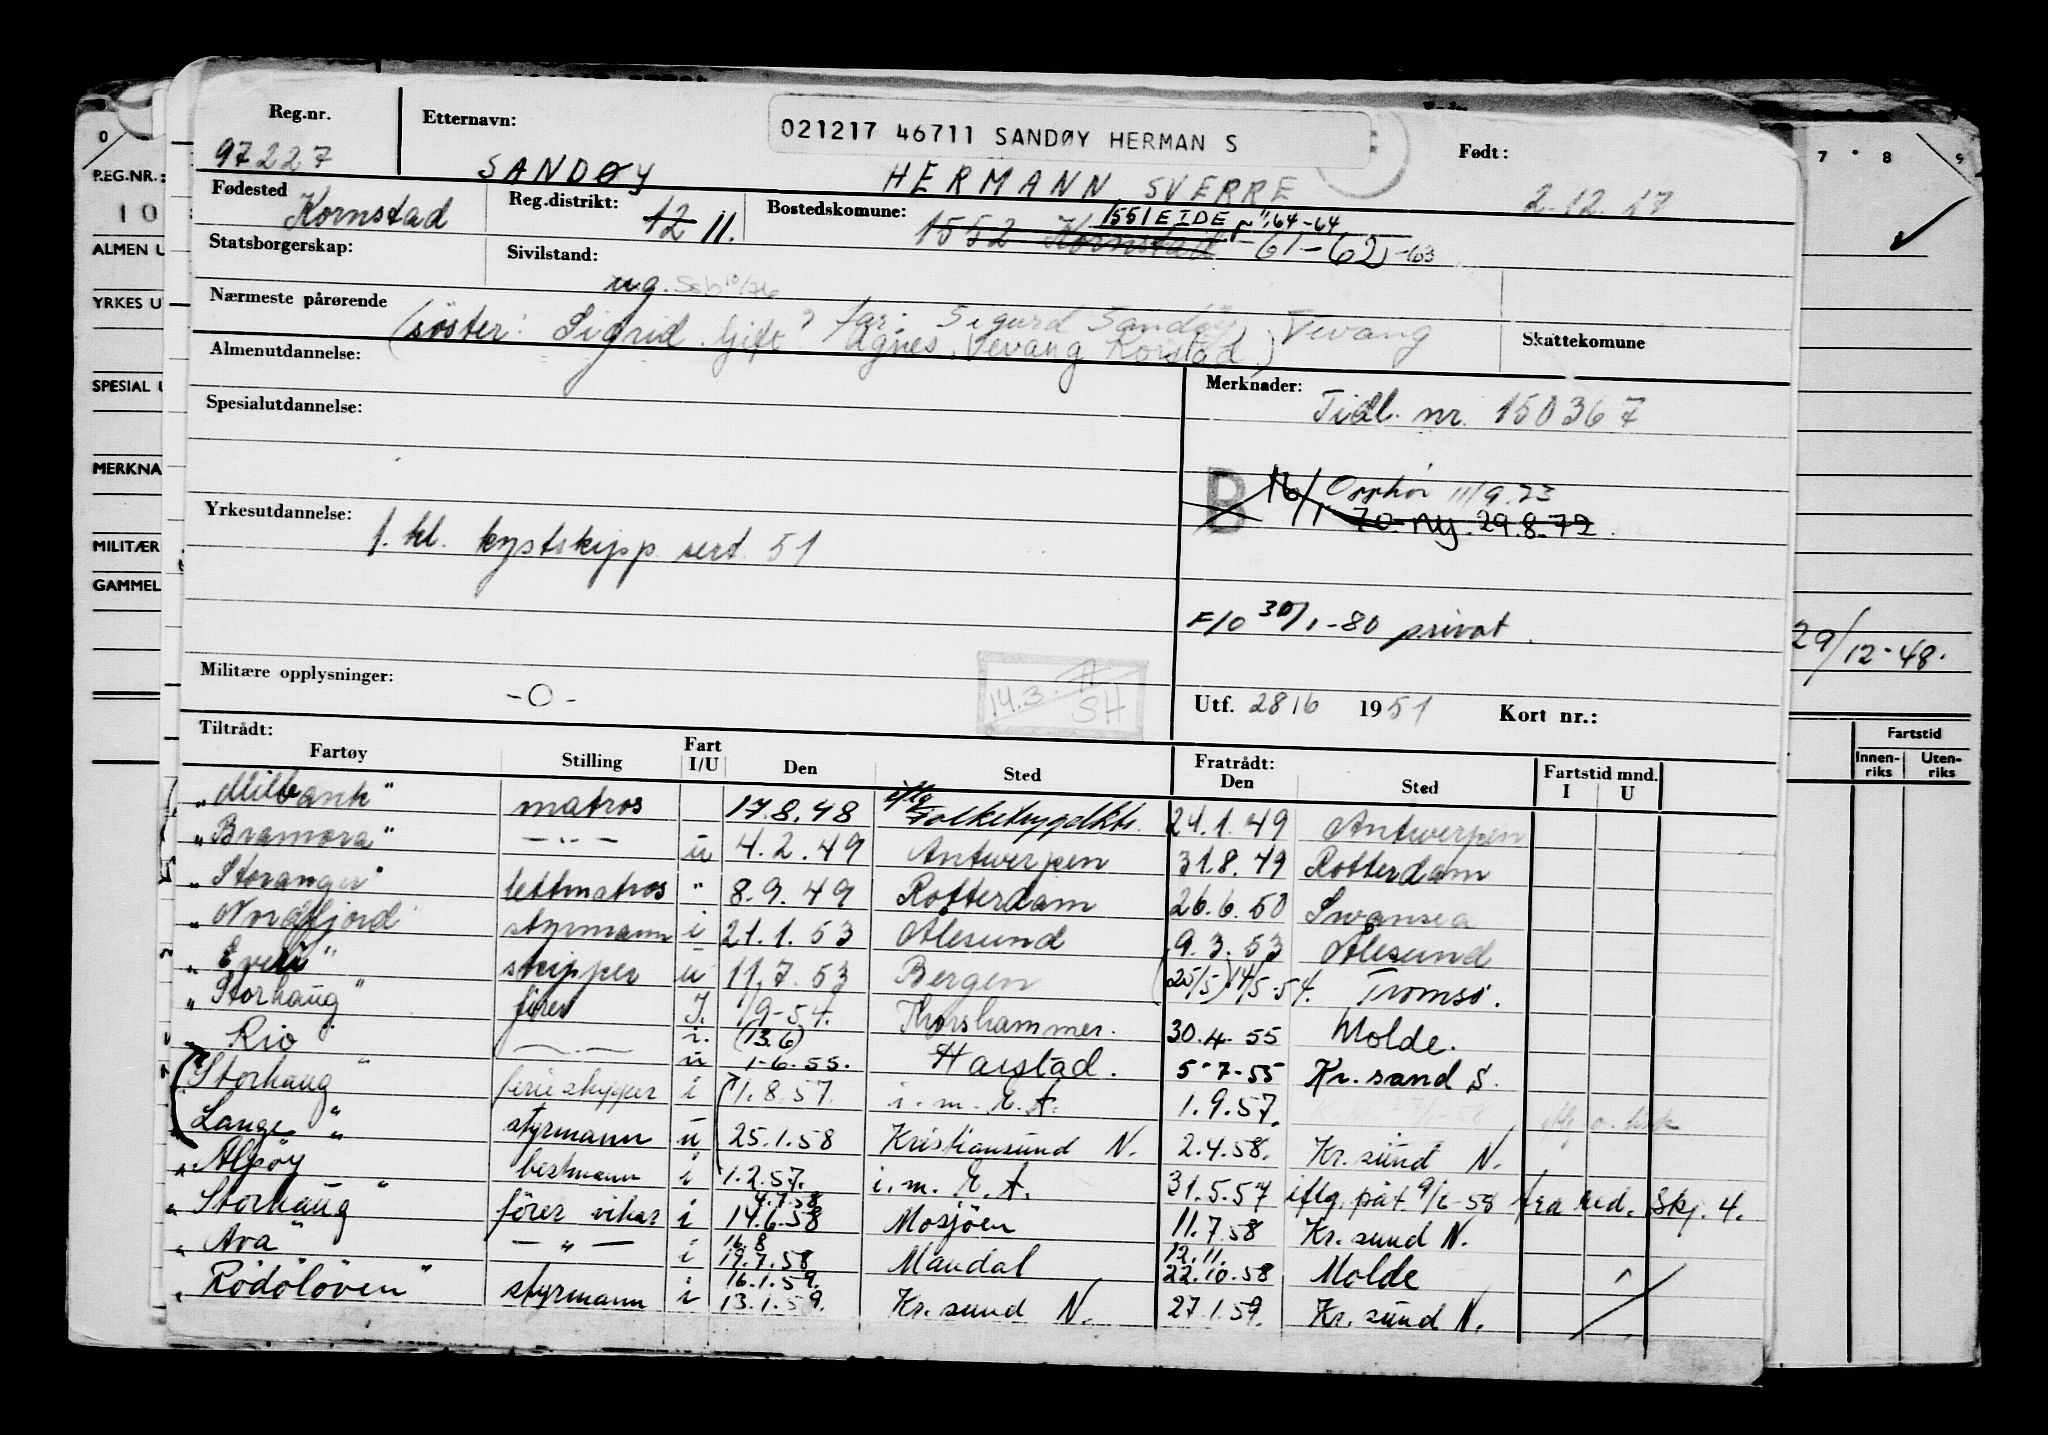 Reg.nr. Etternavn: 021217 46711 SANDØY HERMAN S Født:
97227 SANDØY HERMANN SVERRE 2.12.17
Fødested Kornstad Reg.distrikt: 12 11. Bostedskomune: 1551 EIDE 64-64
1552 Kornstad -61-62-63
Statsborgerskap: Sivilstand: ug.
Nærmeste pårørende far: Sigurd Sandøy, Vevang Skattekomune
(søster: Sigrid. Gift? Agnes, Vevang Korstad)
Almenutdannelse: Merknader:
Tidl. nr. 150367
Spesialutdannelse:
B 16/1 Opphør 11/9.73
70-ny. 29.8.72
Yrkesutdannelse: 1. kl. kystskipp sert. 51
F/O 30/1-80 privat.
Militære opplysninger: -0- 14.3. SH
Utf. 28/6 1951 Kort nr.:
Tiltrådt: Fratrådt:
Fartøy Stilling Fart I/U Den Sted Den Sted Fartstid mnd. I U
"Milbank" matros 17.8.48 iflg Folketrygdktr. 21.1.49 Antwerpen
"Bramora" -"- u 4.2.49 Antwerpen 31.8.49 Rotterdam
"Storanger" lettmatros " 8.9.49 Rotterdam 26.6.50 Swansea
"Nordfjord styrmann i 21.1.53 Ålesund 9.3.53 Ålesund
"Eveli" skipper u 11.7.53 Bergen (25/5) 14/5-54. Tromsö.
"Storhaug" förer I. 1/9-54. Thorshammer. 30.4.55 Molde.
Rio" -"- i. u (13.6) 1-6.55. Harstad. 5-7-55 Kr.sand S.
"Storhaug" ferieskipper i 1.8.57. i.m. E.A. 1.9.57.
"Lange" styrmann u 25.1.58 Kristiansund N. 2.4.58. Kr.sund N.
"Alpöy" bestmann i 1.2.57. i.m. E.A. 31.5.57 iflg. påt. 9/6-58 fra red. Skj. 4.
"Storhaug" förer vikar i 4.7.58 14.6.58 Mosjöen 11.7.58 Kr.sund N.
"Ava" -"- i 16.8 19.7.58 Mandal 12.11. 22.10.58 Molde
"Rödölöven" styrmann i 16.1.59. 13.1.59. Kr.sund N. 27.1.59. Kr.sund N.
0 7 8 9
REG.NR.:
10
ALMEN U
YRKES U
SPESIAL U
MERKNA
MILITÆR
GAMMEL
29/12-48.
Fartstid
Innen-riks Uten-riks